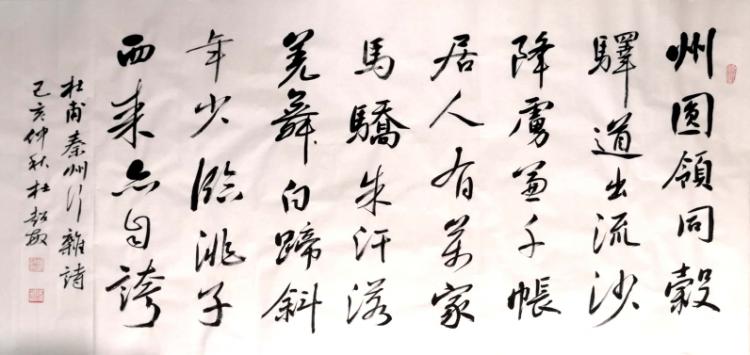 州圓領同穀
驛道出流沙
降虜兼千帳
居人有萬家
馬驕朱汗落
羌舞白蹄斜
年少臨洮子
西來亦自誇
杜甫秦州行雜詩
己亥仲秋杜